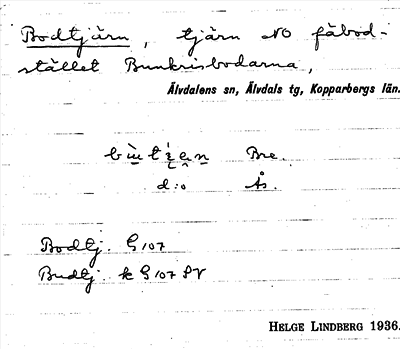 Bodtjärn, tjärn NO fäbod-
stället Bunkrisbodarna,
Älvdalens sn, Älvdals tg, Kopparbergs län.
Bre.
d:o Ås.
Bodtj. G 107
Budtj. k G 107 SV
HELGE LINDBERG 1936.